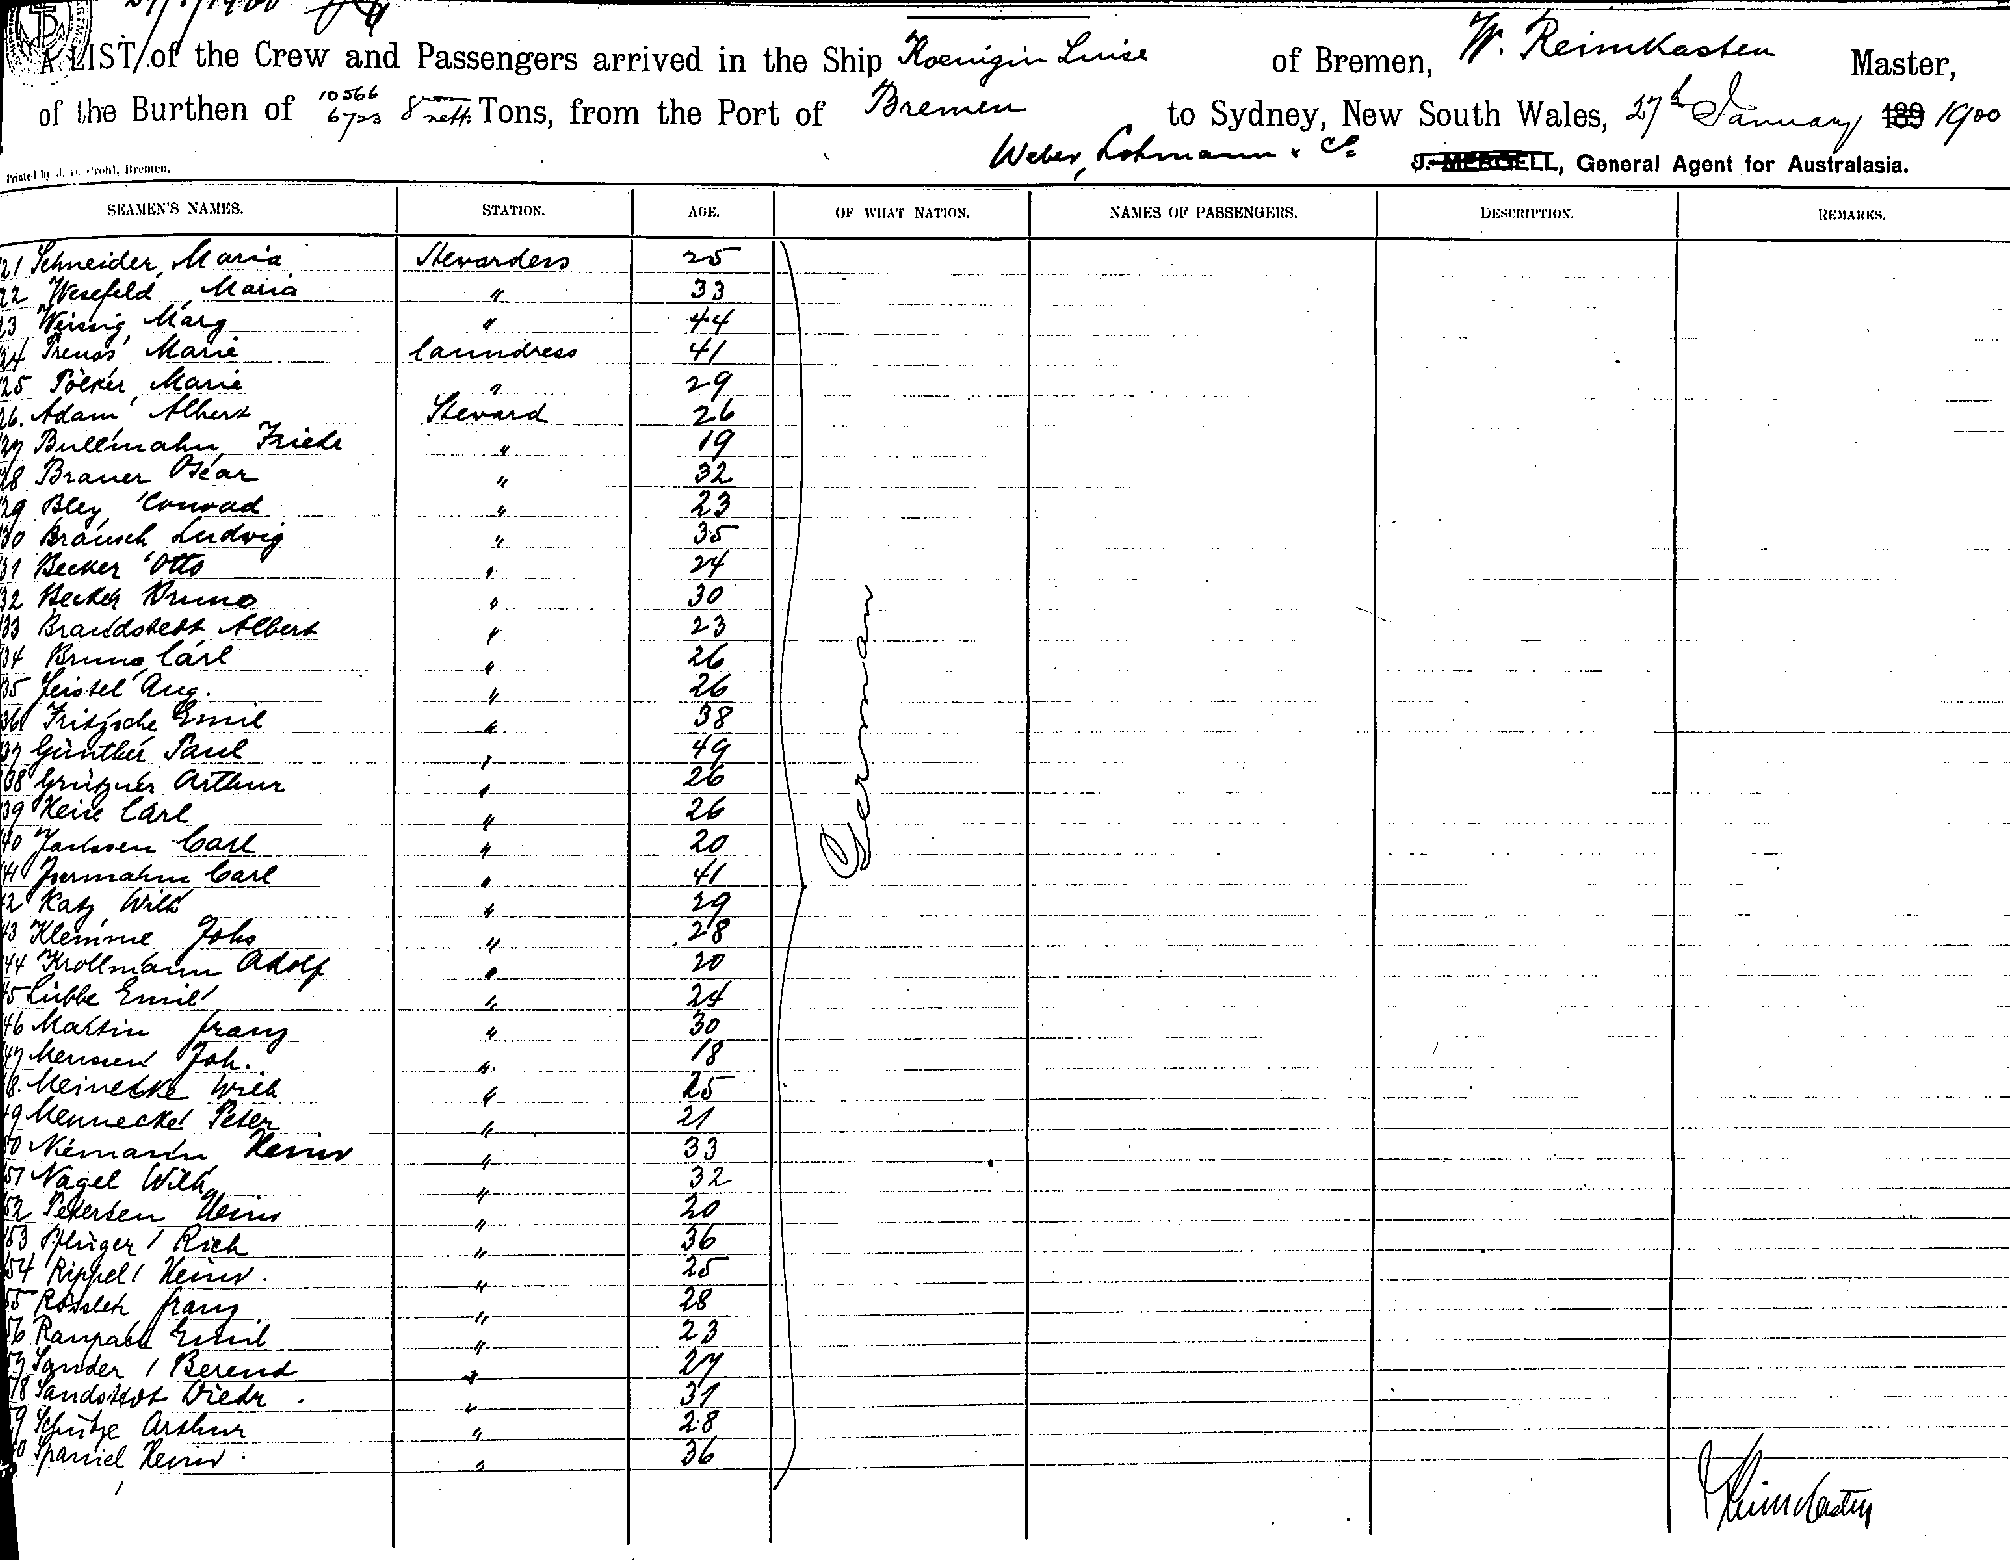 27/1/1900
A LIST of the Crew and Passengers arrived in the Ship Koenigin Luise of Bremen, W. Reimkasten Master,
of the Burthen of 10566 6723 8 Tons, from the Port of Bremen to Sydney, New South Wales, 27th January 189 1900
Weber, Lohmann & Co J. MERGELL, General Agent for Australasia.
Printed by J. H. Prohl, Bremen.
SEAMEN'S NAMES. STATION. AGE. OF WHAT NATION. NAMES OF PASSENGERS. DESCRIPTION. REMARKS.
21 Schneider, Maria Stewardess 25
22 Wesefeld, Maria " 33
23 Weissig, Marg " 44
24 Marie laundress 41
25 Pölker, Marie " 29
26. Adam Albert Steward 26
27 Bullmahn, Friedr " 19
28 Brauer Oscar " 32
29 Bley Conrad " 23
30 Brausch Ludwig " 35
31 Becker Otto " 24
32 Becker Bruno " 30
33 Brandstedt Albert " 23
34 Bruns, Carl " 26
35 Feistel Aug. " 26
36 Fritzsche Emil " 38
37 Günther Paul " 49
38 Grützner Arthur " 26
39 Heise Carl " 26
40 Janssen Carl " 20
41 Carl " 41
42 Katz, Wilh " 29
43 Klemme Johs " 28
44 Krollmann Adolf " 20
45 Lübbe Emil " 24
46 Martin Franz " 30
47 Menssen Joh. " 18
48. Meinecke Wilh " 25
49 Mennecke Peter " 21
50 Niemann Heinr " 33
51 Nagel Wilh " 32
52 Petersen Heinr " 20
53 Pflüger Rich " 36
54 Rippel Heinr. " 25
55 Rössler Franz " 28
56 Emil " 23
57 Sander Berend " 27
58 Sandstedt Diedr. " 31
59 Schütze Arthur " 28
60 Spaniel Heinr. " 36
German
Reimkasten